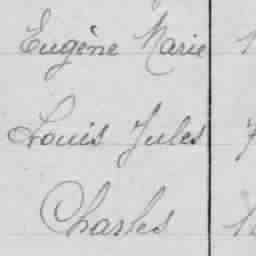 Eugène Marie
Louis Jules
Charles